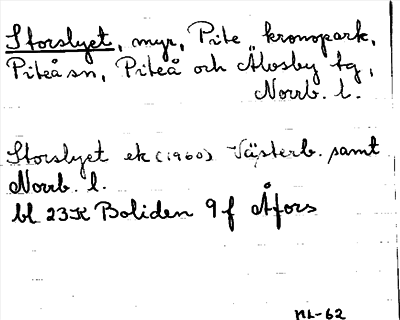 Storslyet, myr, Pite kronopark,
Piteå sn, Piteå och Älvsby tg,
Norrb. l.
Storslyet ek (1960) Västerb. samt
Norrb. l.
bl 23K Boliden 9f Åfors
NL-62